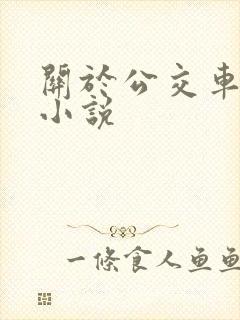 關於公交車
小說
一條食人鱼鱼